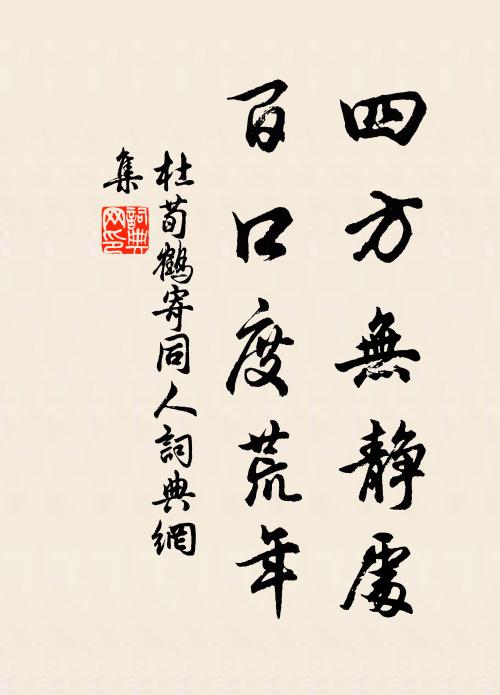 四方無静處
百口度荒年
杜荀鶴寄同人詞典網
集
詞典網印